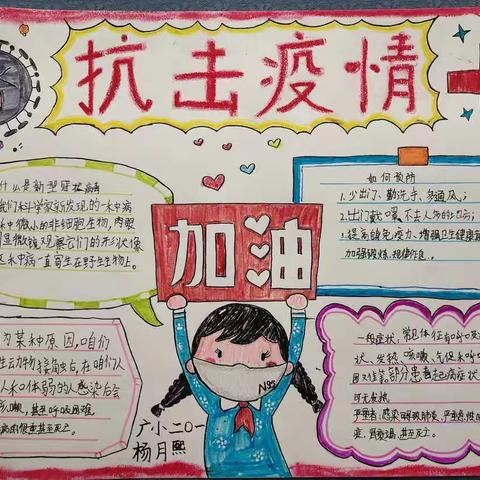 抗击疫情
什么是新型冠状病毒
我们科学家新发现的一种病
种微小的非细胞生物,肉眼
显微镜观察它们的形状像
这种病一直寄生在野生生物上。
如何预防
1.少出门、勤洗手、多通风;
2.出门戴口罩不去人多的地方;
3.提高的免疫力、增强卫生健康
加强锻炼、规律作息。
加油
为某种原因,咱们
生动物接触后,在咱们人
人和体弱的感染后会
咳嗽,甚至呼吸困难,
病情很重甚至死亡。
N95
广小二〇一
杨月熙
一般症状,常见体征有呼吸
状、发热、咳嗽、气促和呼
困难等,部分患者起病症状
可无发热。
严重者:感染导致肺炎、严重急性
竭、肾衰竭,甚至死亡。